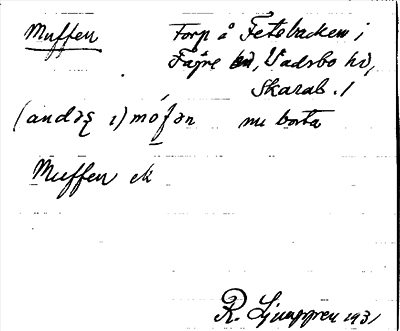 Muffen Torp å Fetebacken i
Fägre sn, Vadsbo hd,
Skarab. l
(andəʂ ı) mófən nu borta
Muffen ek
R. Ljunggren 1931